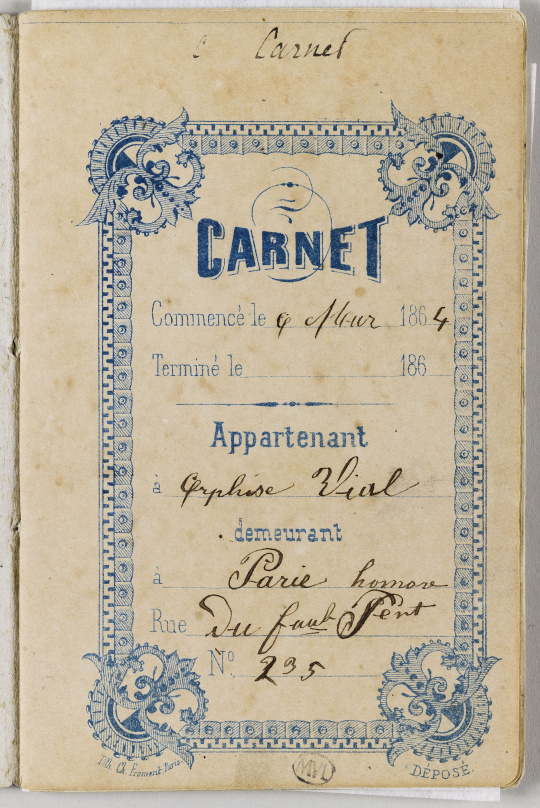 Carnet
CARNET
Commencé le 9 Mar 1864
Terminé le 186
Appartenant
à Orphise Vial
demeurant
à Parie honore
Rue Du faub Pent
N° 235
Lith. Ch. Froment Paris
DÉPOSÉ.